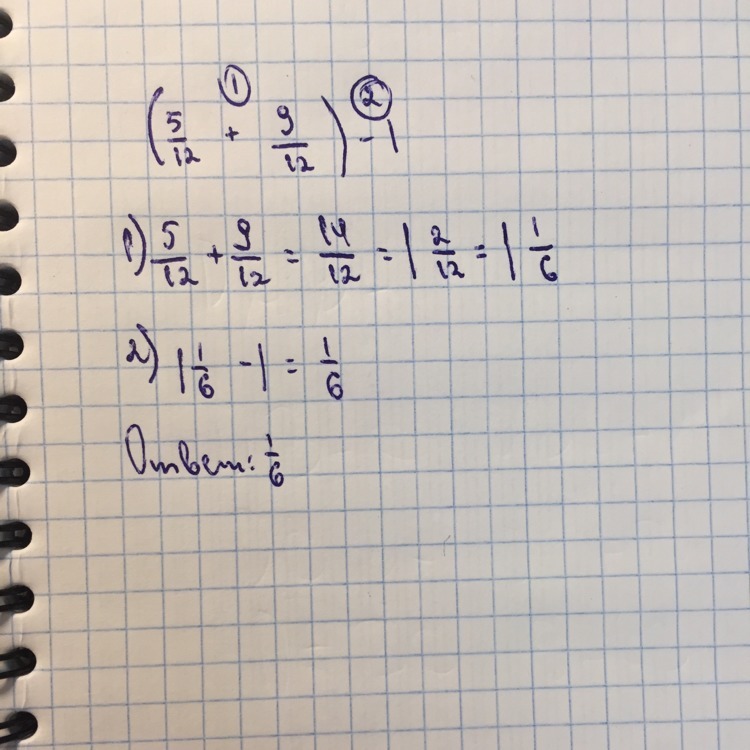 ① ②
(5/12 + 9/12) - 1
1) 5/12 + 9/12 = 14/12 = 1 2/12 = 1 1/6
2) 1 1/6 - 1 = 1/6
Ответ: 1/6